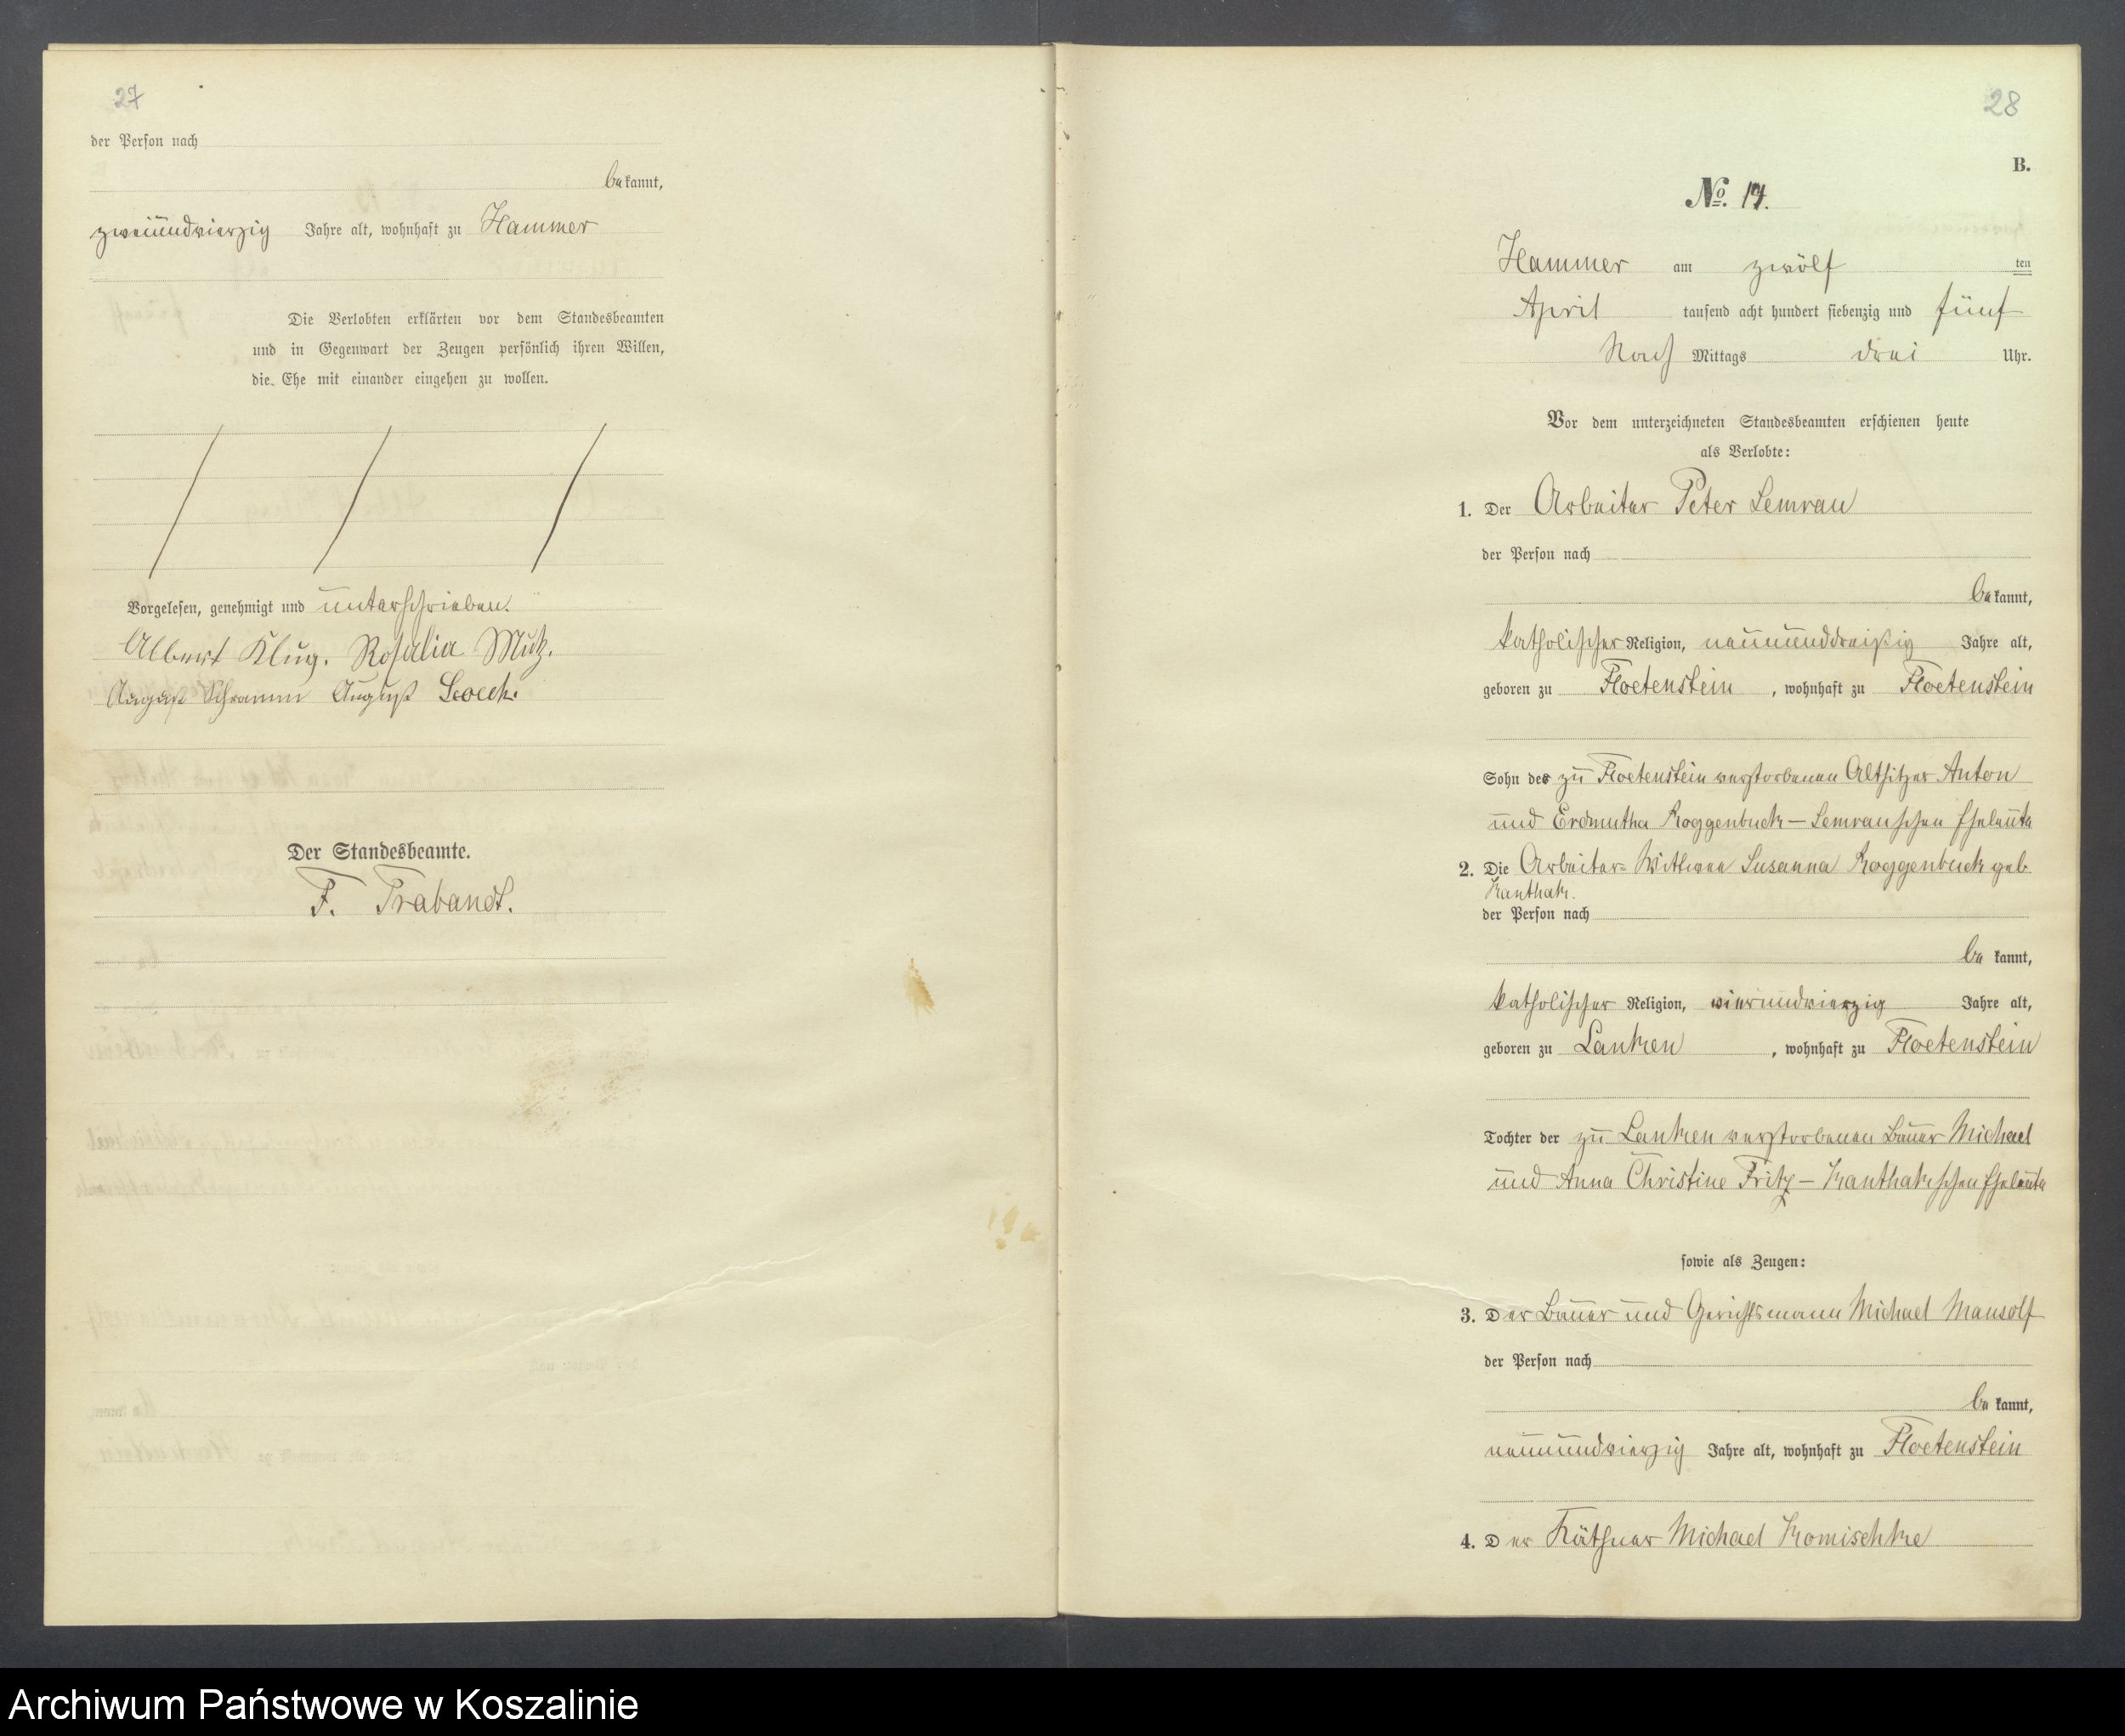 27
der Person nach
bekannt,
zweiundvierzig Jahre alt, wohnhaft zu Hammer
Die Verlobten erklärten vor dem Standesbeamten
und in Gegenwart der Zeugen persönlich ihren Willen,
die Ehe mit einander eingehen zu wollen.
Vorgelesen, genehmigt und unterschrieben.
Albert Klug. Rosalia Mutz.
August Schramm August Loeck.
Der Standesbeamte.
F. Trabandt.
28
B.
No. 14.
Hammer am zwölf ten
April tausend acht hundert siebenzig und fünf
Nach Mittags drei Uhr.
Vor dem unterzeichneten Standesbeamten erschienen heute
als Verlobte:
1. Der Arbeiter Peter Semrau
der Person nach
bekannt,
katholischer Religion, neununddreißig Jahre alt,
geboren zu Floetenstein, wohnhaft zu Floetenstein
Sohn der zu Floetenstein verstorbenen Altsitzer Anton
und Erdmutha Roggenbuck – Semrauschen Eheleute
2. Die Arbeiter-Wittwe Susanna Roggenbuck geb
Kanthak.
der Person nach
be kannt,
katholischer Religion, vierundvierzig Jahre alt,
geboren zu Lanken, wohnhaft zu Floetenstein
Tochter der zu Lanken verstorbenen Bauer Michael
und Anna Christine Fritz – Kanthakschen Eheleute
sowie als Zeugen:
3. Der Bauer und Gerichtsmann Michael Mansolf
der Person nach
be kannt,
neunundvierzig Jahre alt, wohnhaft zu Floetenstein
4. Der Käthner Michael Komischke
Archiwum Państwowe w Koszalinie